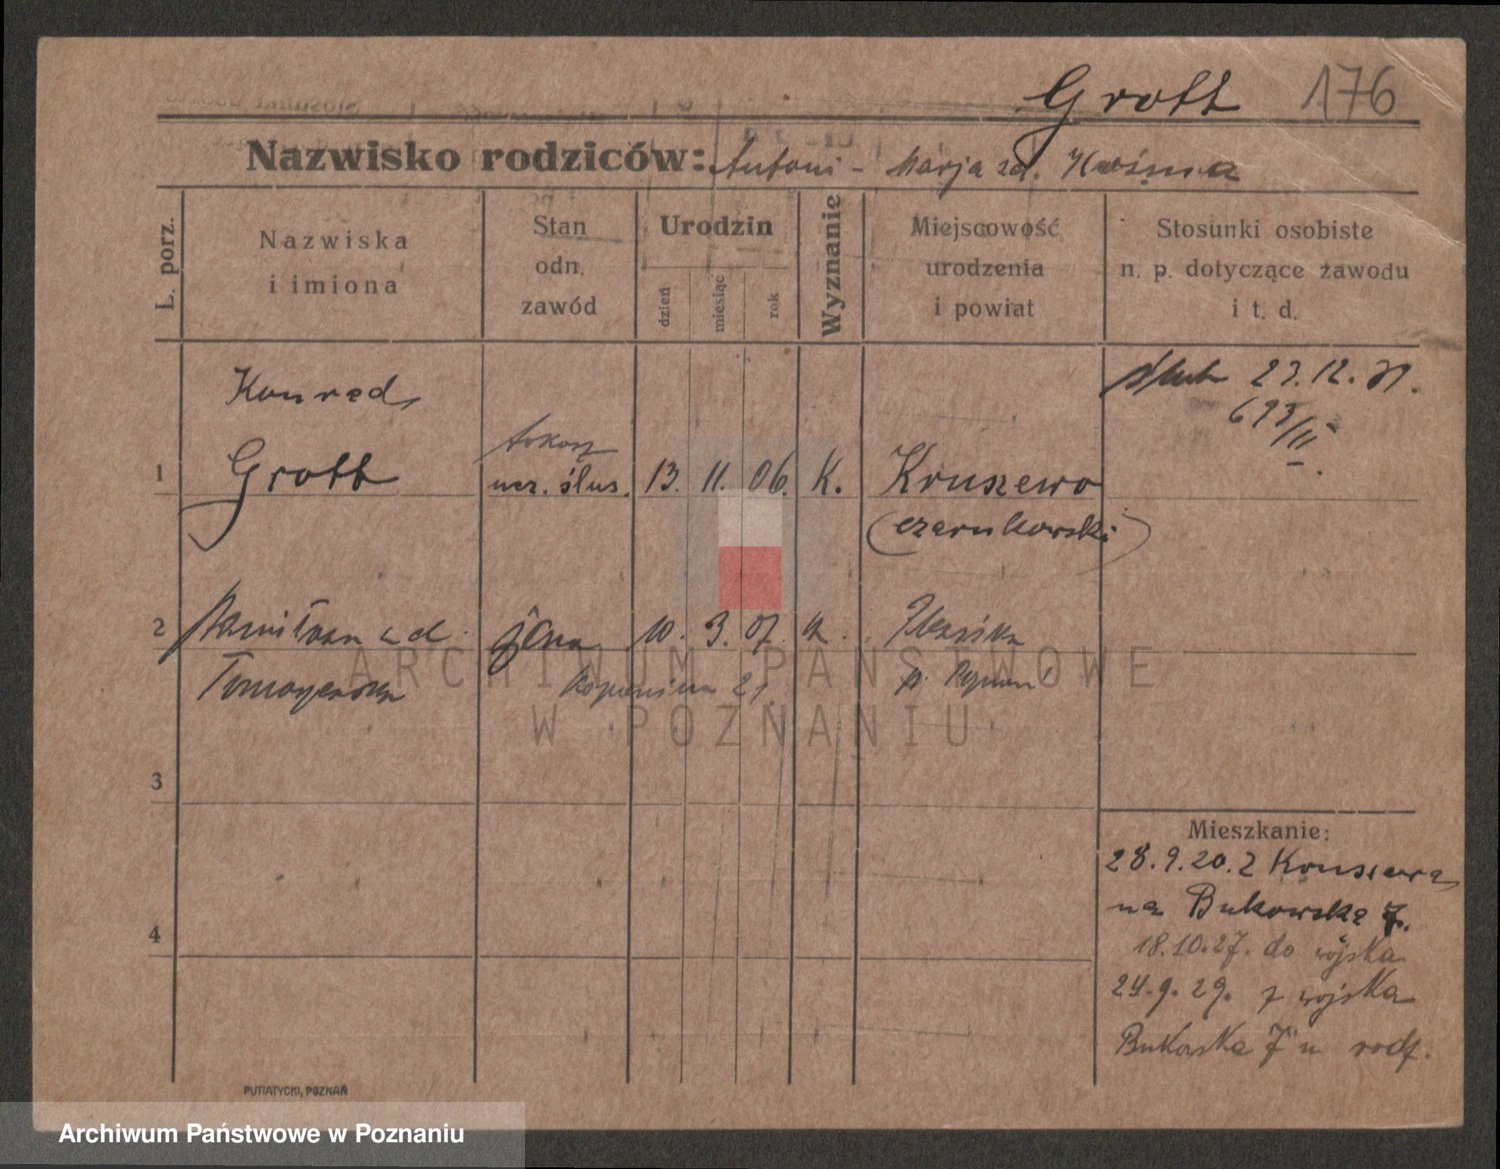 Grott 176
Nazwisko rodziców: Antoni - Marja zd.
L. porz.
Nazwiska
i imiona
Stan
odn.
zawód
Urodzin
dzień
miesiąc
rok
Wyznanie
Miejscowość
urodzenia
i powiat
Stosunki osobiste
n. p. dotyczące zawodu
i t. d.
Konrad
ślub 27.12.31.
tokarz
1 Grott ucz. ślus. 13. 11. 06. K. Kruszewo
(czarnkowski)
2 zd. żona 10. 3. 07. K.
21
3
4
Mieszkanie:
28.9.20. z Kruszewa
na Bukowska 7.
18.10.27. do wojska
24.9.29. z wojska
Bukowska 7 u rodz.
PUTIATYCKI, POZNAŃ
ARCHIWUM PAŃSTWOWE
W POZNANIU
Archiwum Państwowe w Poznaniu